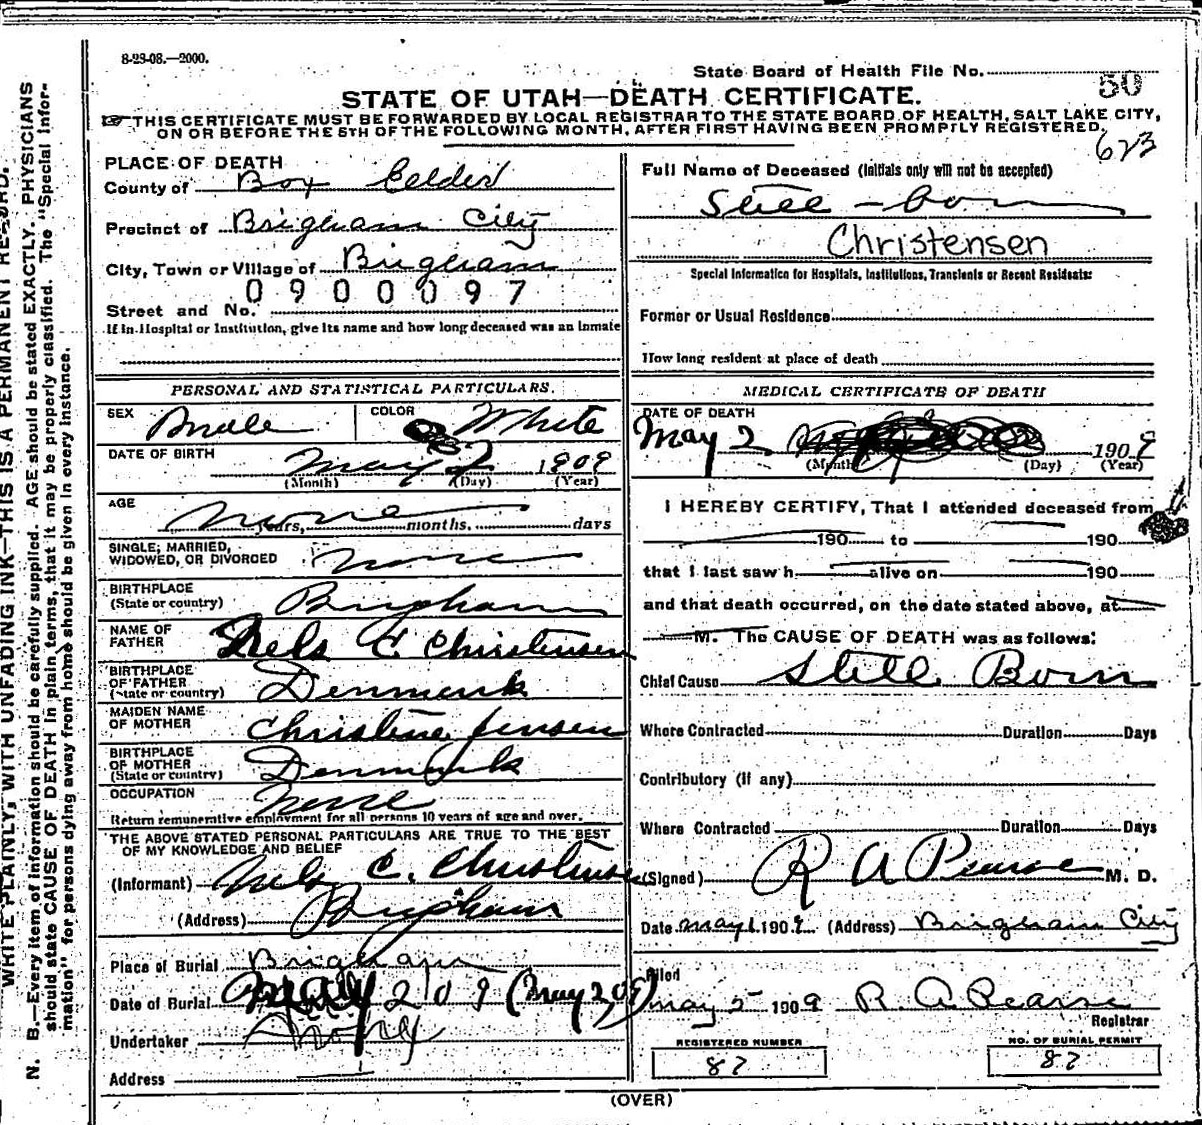 8-23-08.—2000.
State Board of Health File No. 50
STATE OF UTAH—DEATH CERTIFICATE.
THIS CERTIFICATE MUST BE FORWARDED BY LOCAL REGISTRAR TO THE STATE BOARD OF HEALTH, SALT LAKE CITY,
ON OR BEFORE THE 5TH OF THE FOLLOWING MONTH, AFTER FIRST HAVING BEEN PROMPTLY REGISTERED.
623
PLACE OF DEATH
County of Box Elder
Precinct of Brigham City
City, Town or Village of Brigham
0900097
Street and No.
If in Hospital or Institution, give its name and how long deceased was an inmate
PERSONAL AND STATISTICAL PARTICULARS.
SEX Male COLOR White
DATE OF BIRTH May 2 1909
(Month) (Day) (Year)
AGE None years, months, days
SINGLE, MARRIED,
WIDOWED, OR DIVORCED none
BIRTHPLACE
(State or country) Brigham
NAME OF
FATHER Nels C. Christensen
BIRTHPLACE
OF FATHER
(State or country) Denmark
MAIDEN NAME
OF MOTHER Christine Jensen
BIRTHPLACE
OF MOTHER
(State or country) Denmark
OCCUPATION None
Return remunerative employment for all persons 10 years of age and over.
THE ABOVE STATED PERSONAL PARTICULARS ARE TRUE TO THE BEST
OF MY KNOWLEDGE AND BELIEF
(Informant) Nels C. Christensen
(Address) Brigham
Place of Burial Brigham
Date of Burial May 2 09 (May 2, 09)
Undertaker
Address
Full Name of Deceased (Initials only will not be accepted)
Still-born
Christensen
Special Information for Hospitals, Institutions, Transients or Recent Residents:
Former or Usual Residence
How long resident at place of death
MEDICAL CERTIFICATE OF DEATH
DATE OF DEATH
May 2 1909
(Month) (Day) (Year)
I HEREBY CERTIFY, That I attended deceased from
190 to 190
that I last saw h alive on 190
and that death occurred, on the date stated above, at
M. The CAUSE OF DEATH was as follows:
Chief Cause Still Born
Where Contracted Duration Days
Contributory (if any)
Where Contracted Duration Days
(Signed) R A Pearse M. D.
Date May 1909 (Address) Brigham City
Filed
May 5 1909 R. A Pearse
Registrar
REGISTERED NUMBER
87
NO. OF BURIAL PERMIT
87
(OVER)
WRITE PLAINLY, WITH UNFADING INK—THIS IS A PERMANENT RECORD.
N. B.—Every item of information should be carefully supplied. AGE should be stated EXACTLY. PHYSICIANS
should state CAUSE OF DEATH in plain terms, that it may be properly classified. The "Special Infor-
mation" for persons dying away from home should be given in every instance.